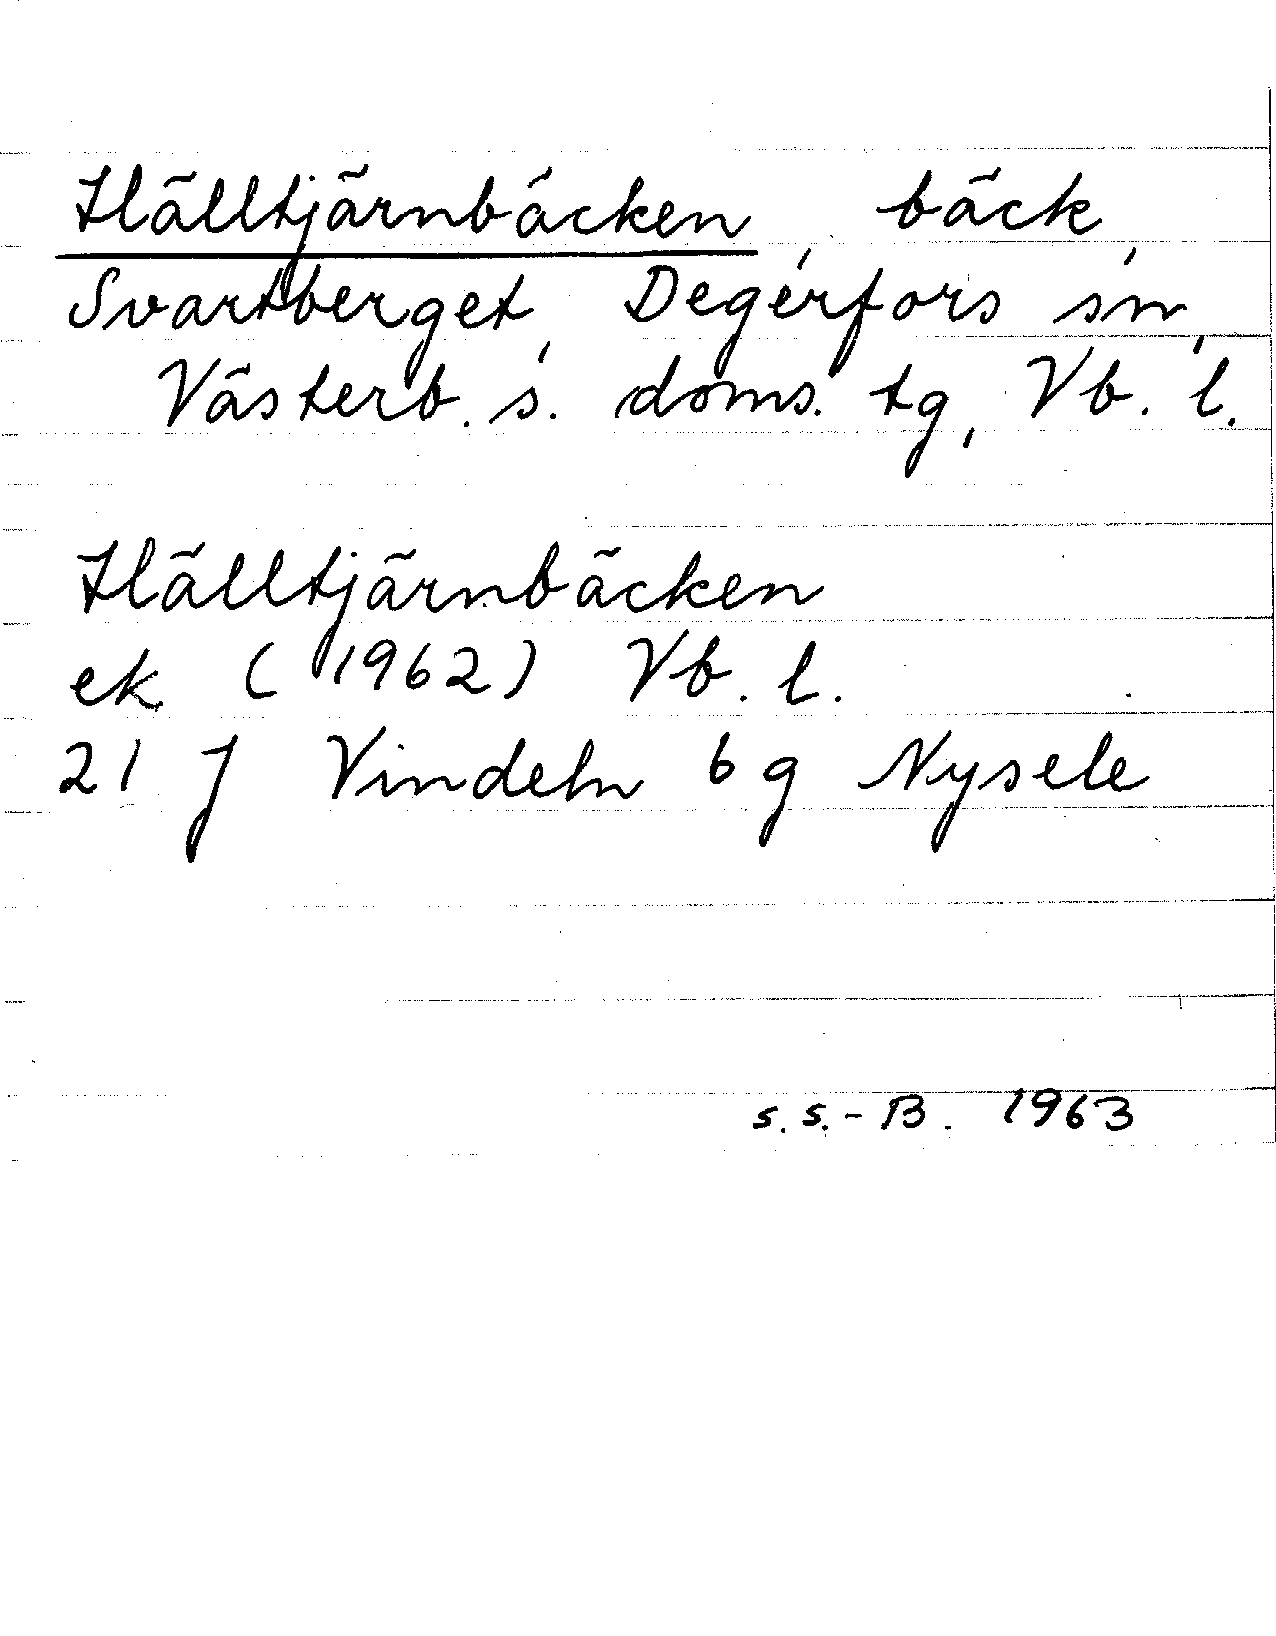 Hälltjärnbäcken, bäck,
Svartberget, Degerfors sn,
Västerb. s. doms. tg, Vb. l.
Hälltjärnbäcken
ek (1962) Vb. l.
21 J Vindeln 6 g Nysele
S. S.-B. 1963